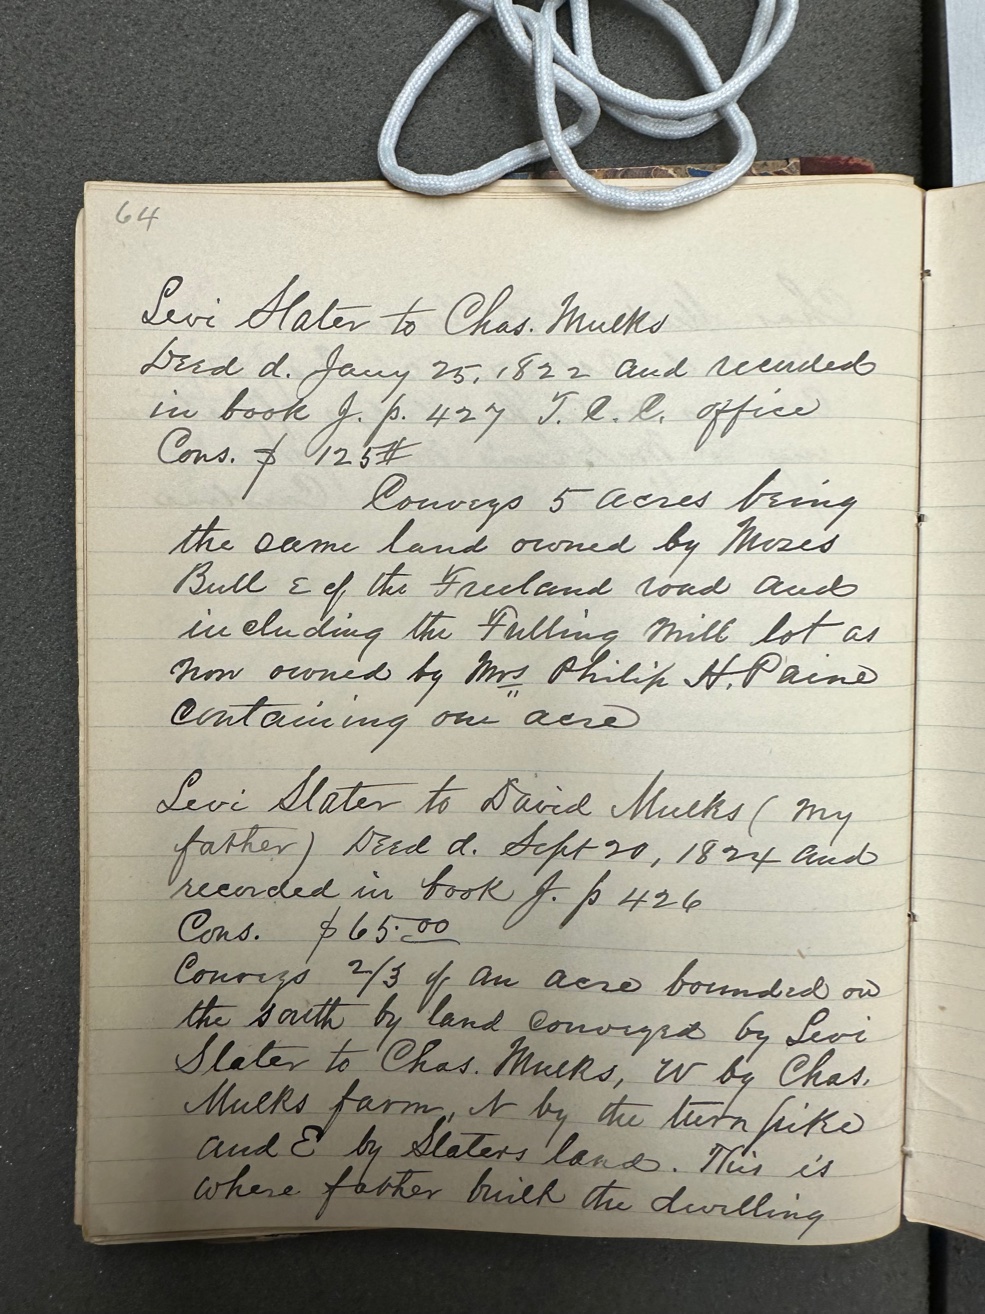 64
Levi Slater to Chas. Mulks
Deed d. Jany 25, 1822 and recorded
in book J. p. 427 T. C. C. office
Cons. $ 125#
Conveys 5 acres being
the same land owned by Moses
Bull E of the Freeland road and
including the Fulling Mill lot as
now owned by Mrs Philip H. Paine
containing one acre
Levi Slater to David Mulks (my
father) Deed d. Sept 20, 1824 and
recorded in book J. p 426
Cons. $65.00
Conveys 2/3 of an acre bounded on
the south by land conveyed by Levi
Slater to Chas. Mulks, W by Chas.
Mulks farm, N by the turnpike
and E by Slaters land. This is
where father built the dwelling